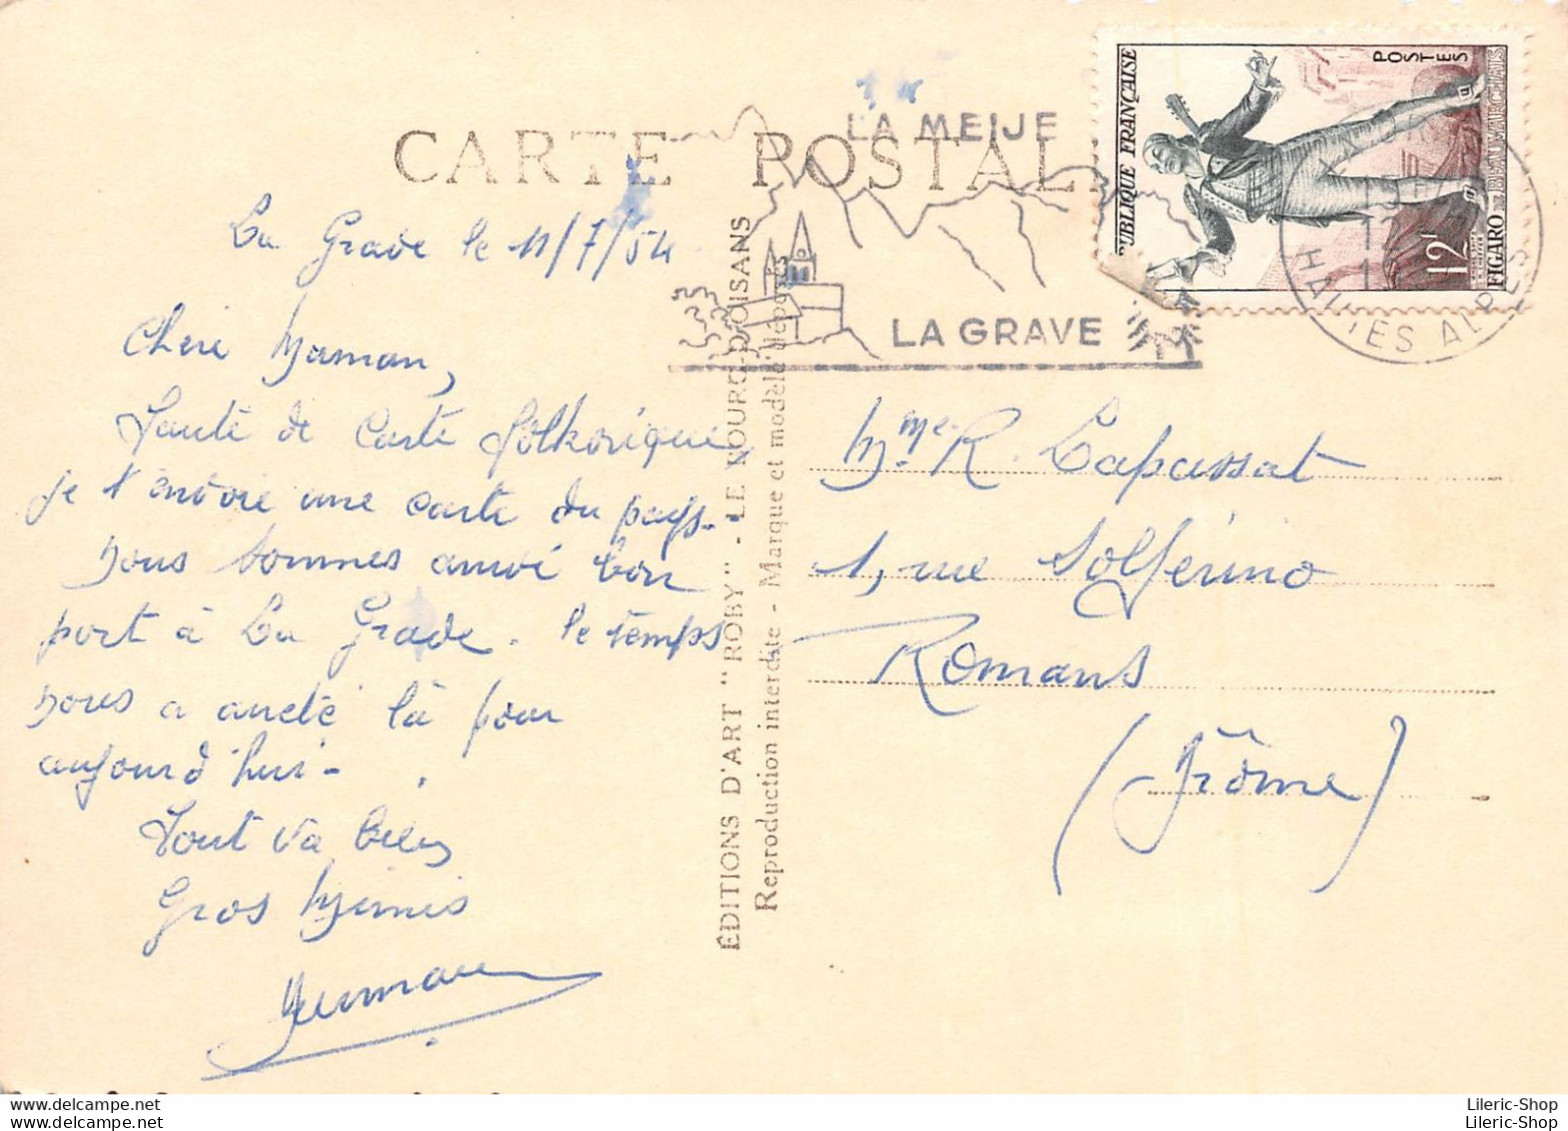 CARTE POSTALE
LA MEIJE
LA GRAVE
RÉPUBLIQUE FRANÇAISE
POSTES
12F
FIGARO DE BEAUMARCHAIS
HAUTES ALPES
La Grave le 11/7/54
Chère Maman,
Faute de carte folkorique
je t'envoie une carte du pays.
Nous sommes arrivé bon
port à La Grave. le temps
nous a arrêté là pour
aujourd'hui -
Tout va bien
Gros Mimis
ÉDITIONS D'ART "ROBY" - LE BOURG-D'OISANS
Reproduction interdite - Marque et modèle déposés
Mme R. Capassat
1, rue Solférino
Romans
(Drôme)
www.delcampe.net
lileric
Lileric-Shop
Lileric-Shop